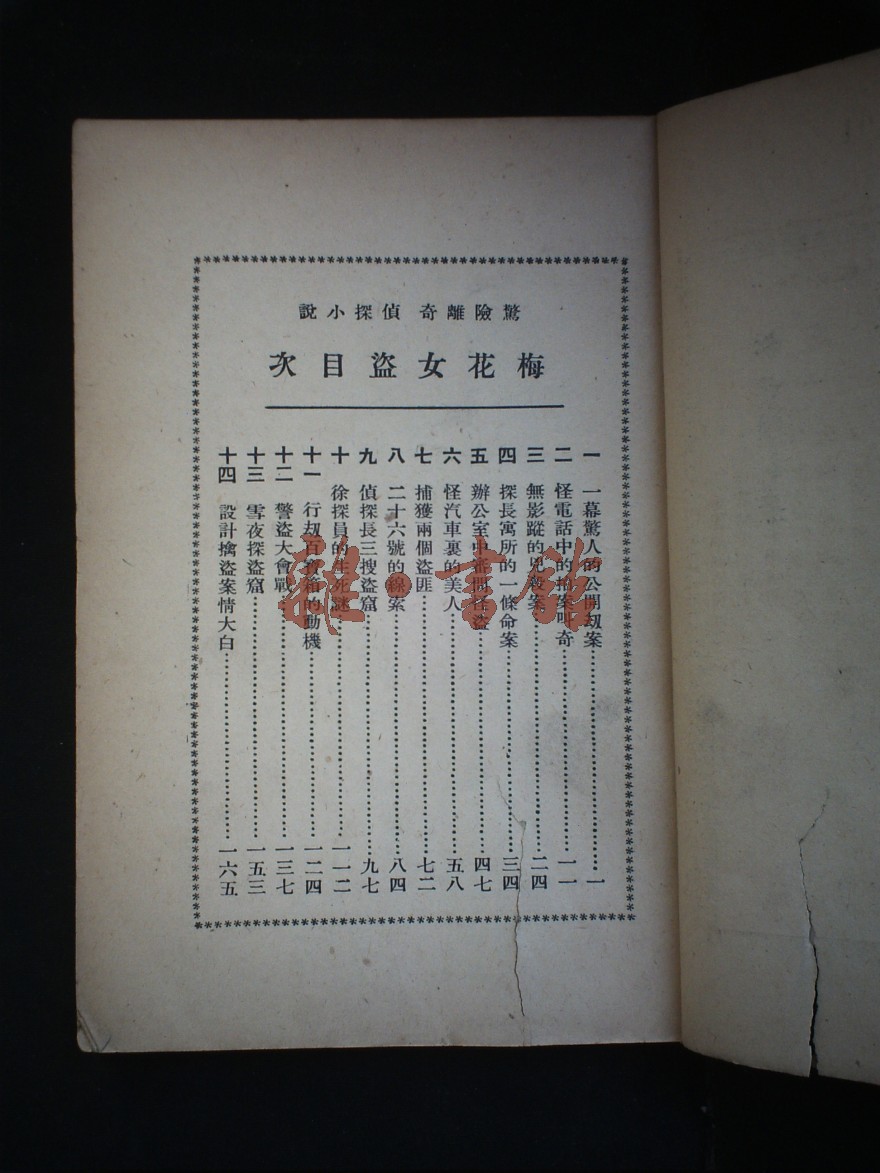 驚險離奇 偵探小說
梅花女盜目次
一 一幕驚人的公開劫案 一
二 怪電話中的搶案叫奇 一一
三 無影蹤的兇殺案 二四
四 探長寓所的一條命案 三四
五 辦公室中審問怪盜 四七
六 怪汽車裏的美人 五八
七 捕獲兩個盜匪 七二
八 二十六號的線索 八四
九 偵探長三搜盜窟 九七
十 徐探員的生死謎 一一二
十一 行劫百寶箱的動機 一二四
十二 警盜大會戰 一三七
十三 雪夜探盜窟 一五三
十四 設計擒盜案情大白 一六五
雜·书館